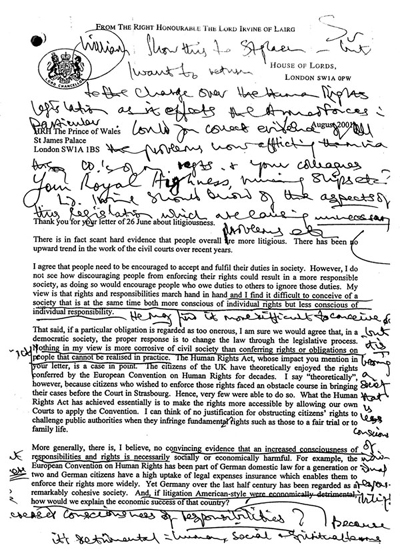 FROM THE RIGHT HONOURABLE THE LORD IRVINE OF LAIRG
William. Show this to
I want to return
HOUSE OF LORDS,
LONDON SW1A 0PW
to the charge over the Human Rights
legislation as it effects the Armed Forces in
particular. Could you collect evidence of all
August 2001
HRH The Prince of Wales
St James Palace
London SW1A 1BS
the problems now afflicting
co's of regts. & your colleagues
Your Royal Highness,
running ships etc?
Ld. Irvine should know of the aspects of
this legislation which are causing unnecessary
problems etc
Thank you for your letter of 26 June about litigiousness.
There is in fact scant hard evidence that people overall are more litigious. There has been no
upward trend in the work of the civil courts over recent years.
I agree that people need to be encouraged to accept and fulfil their duties in society. However, I do
not see how discouraging people from enforcing their rights could result in a more responsible
society, as doing so would encourage people who owe duties to others to ignore those duties. My
view is that rights and responsibilities march hand in hand and I find it difficult to conceive of a
society that is at the same time both more conscious of individual rights but less conscious of
individual responsibility.
He may find it more difficult to conceive of
That said, if a particular obligation is regarded as too onerous, I am sure we would agree that, in a
democratic society, the proper response is to change the law through the legislative process.
Nothing in my view is more corrosive of civil society than conferring rights or obligations on
people that cannot be realised in practice. The Human Rights Act, whose impact you mention in
your letter, is a case in point. The citizens of the UK have theoretically enjoyed the rights
conferred by the European Convention on Human Rights for decades. I say "theoretically",
however, because citizens who wished to enforce those rights faced an obstacle course in bringing
their cases before the Court in Strasbourg. Hence, very few were able to do so. What the Human
Rights Act has achieved essentially is to make the rights more accessible by allowing our own
Courts to apply the Convention. I can think of no justification for obstructing citizens' rights to
challenge public authorities when they infringe fundamental rights such as those to a fair trial or to
family life.
but
is
less
conscious
of
More generally, there is, I believe, no convincing evidence that an increased consciousness of
rights and responsibilities is necessarily socially or economically harmful. For example, the
European Convention on Human Rights has been part of German domestic law for a generation or
two and German citizens have a high uptake of legal expenses insurance which enables them to
enforce their rights more widely. Yet Germany over the last half century has been regarded as a
remarkably cohesive society. And, if litigation American-style were economically detrimental,
how would we explain the economic success of that country?
consciousness of responsibilities? Because
it's detrimental in human, social & spiritual terms